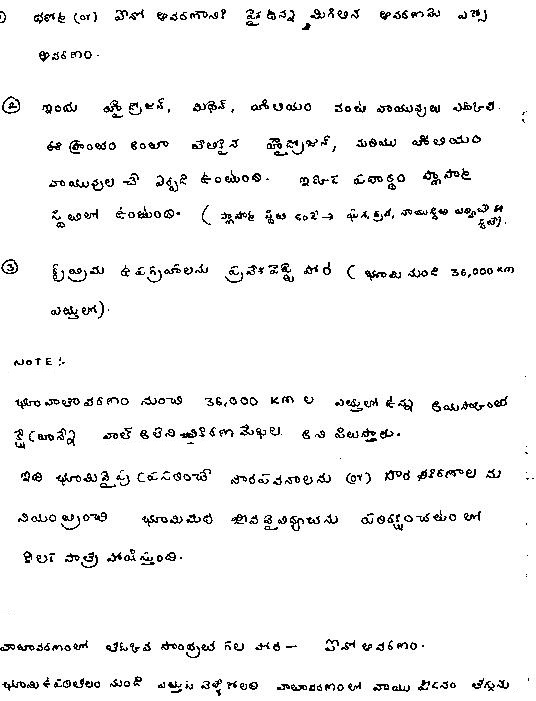 ) థర్మో (or) ఐనో ఆవరణానికి పైన ఉన్న మిగిలిన ఆవరణమే ఎక్సో
ఆవరణం.
② ఇందు హైడ్రోజన్, మిథేన్, హీలియం వంటి వాయువులు
ఈ ప్రాంతం కంటా తేలికైన హైడ్రోజన్, మరియు హీలియం
వాయువుల చే ఏర్పడి ఉంటుంది. ఇక్కడ పదార్థం ప్లాస్మా
స్థితిలో ఉంటుంది. ( ప్లాస్మా స్థితి అంటే → ఘన, ద్రవ, వాయు
③ కృత్రిమ ఉపగ్రహాలను ప్రవేశపెట్టే పొర ( భూమి నుండి 36,000 km
ఎత్తులో).
NOTE :-
భూవాతావరణం నుంచి 36,000 km ల ఎత్తులో ఉన్న అయస్కాంత
క్షేత్రాన్నే వాన్ అలెన్ వికిరణ మేఖల అని పిలుస్తారు.
ఇది భూమిపై ప్రసరించే సౌరపవనాలను (or) సౌర కిరణాల ను
నియంత్రించి భూమిమీద జీవవైవిధ్యాన్ని పరిరక్షించటం లో
కీలక పాత్ర పోషిస్తుంది.
వాతావరణంలో అధిక సాంద్రత గల పొర — ఐనో ఆవరణం.
భూమి ఉపరితలం నుండి ఎత్తుకు వెళ్ళేకొలది వాతావరణంలో వాయు పీడనం తగ్గును